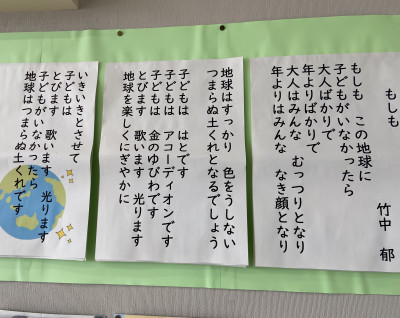 もしも
竹中 郁
もしも この地球に
子どもがいなかったら
大人ばかりで
年よりばかりで
大人はみんな むっつりとなり
年よりはみんな なき顔となり
地球はすっかり 色をうしない
つまらぬ土くれとなるでしょう
子どもは はとです
子どもは アコーディオンです
子どもは 金のゆびわです
とびます 歌います 光ります
地球を楽しくにぎやかに
いきいきとさせて
子どもは
とびます 歌います 光ります
子どもがいなかったら
地球はつまらぬ土くれです